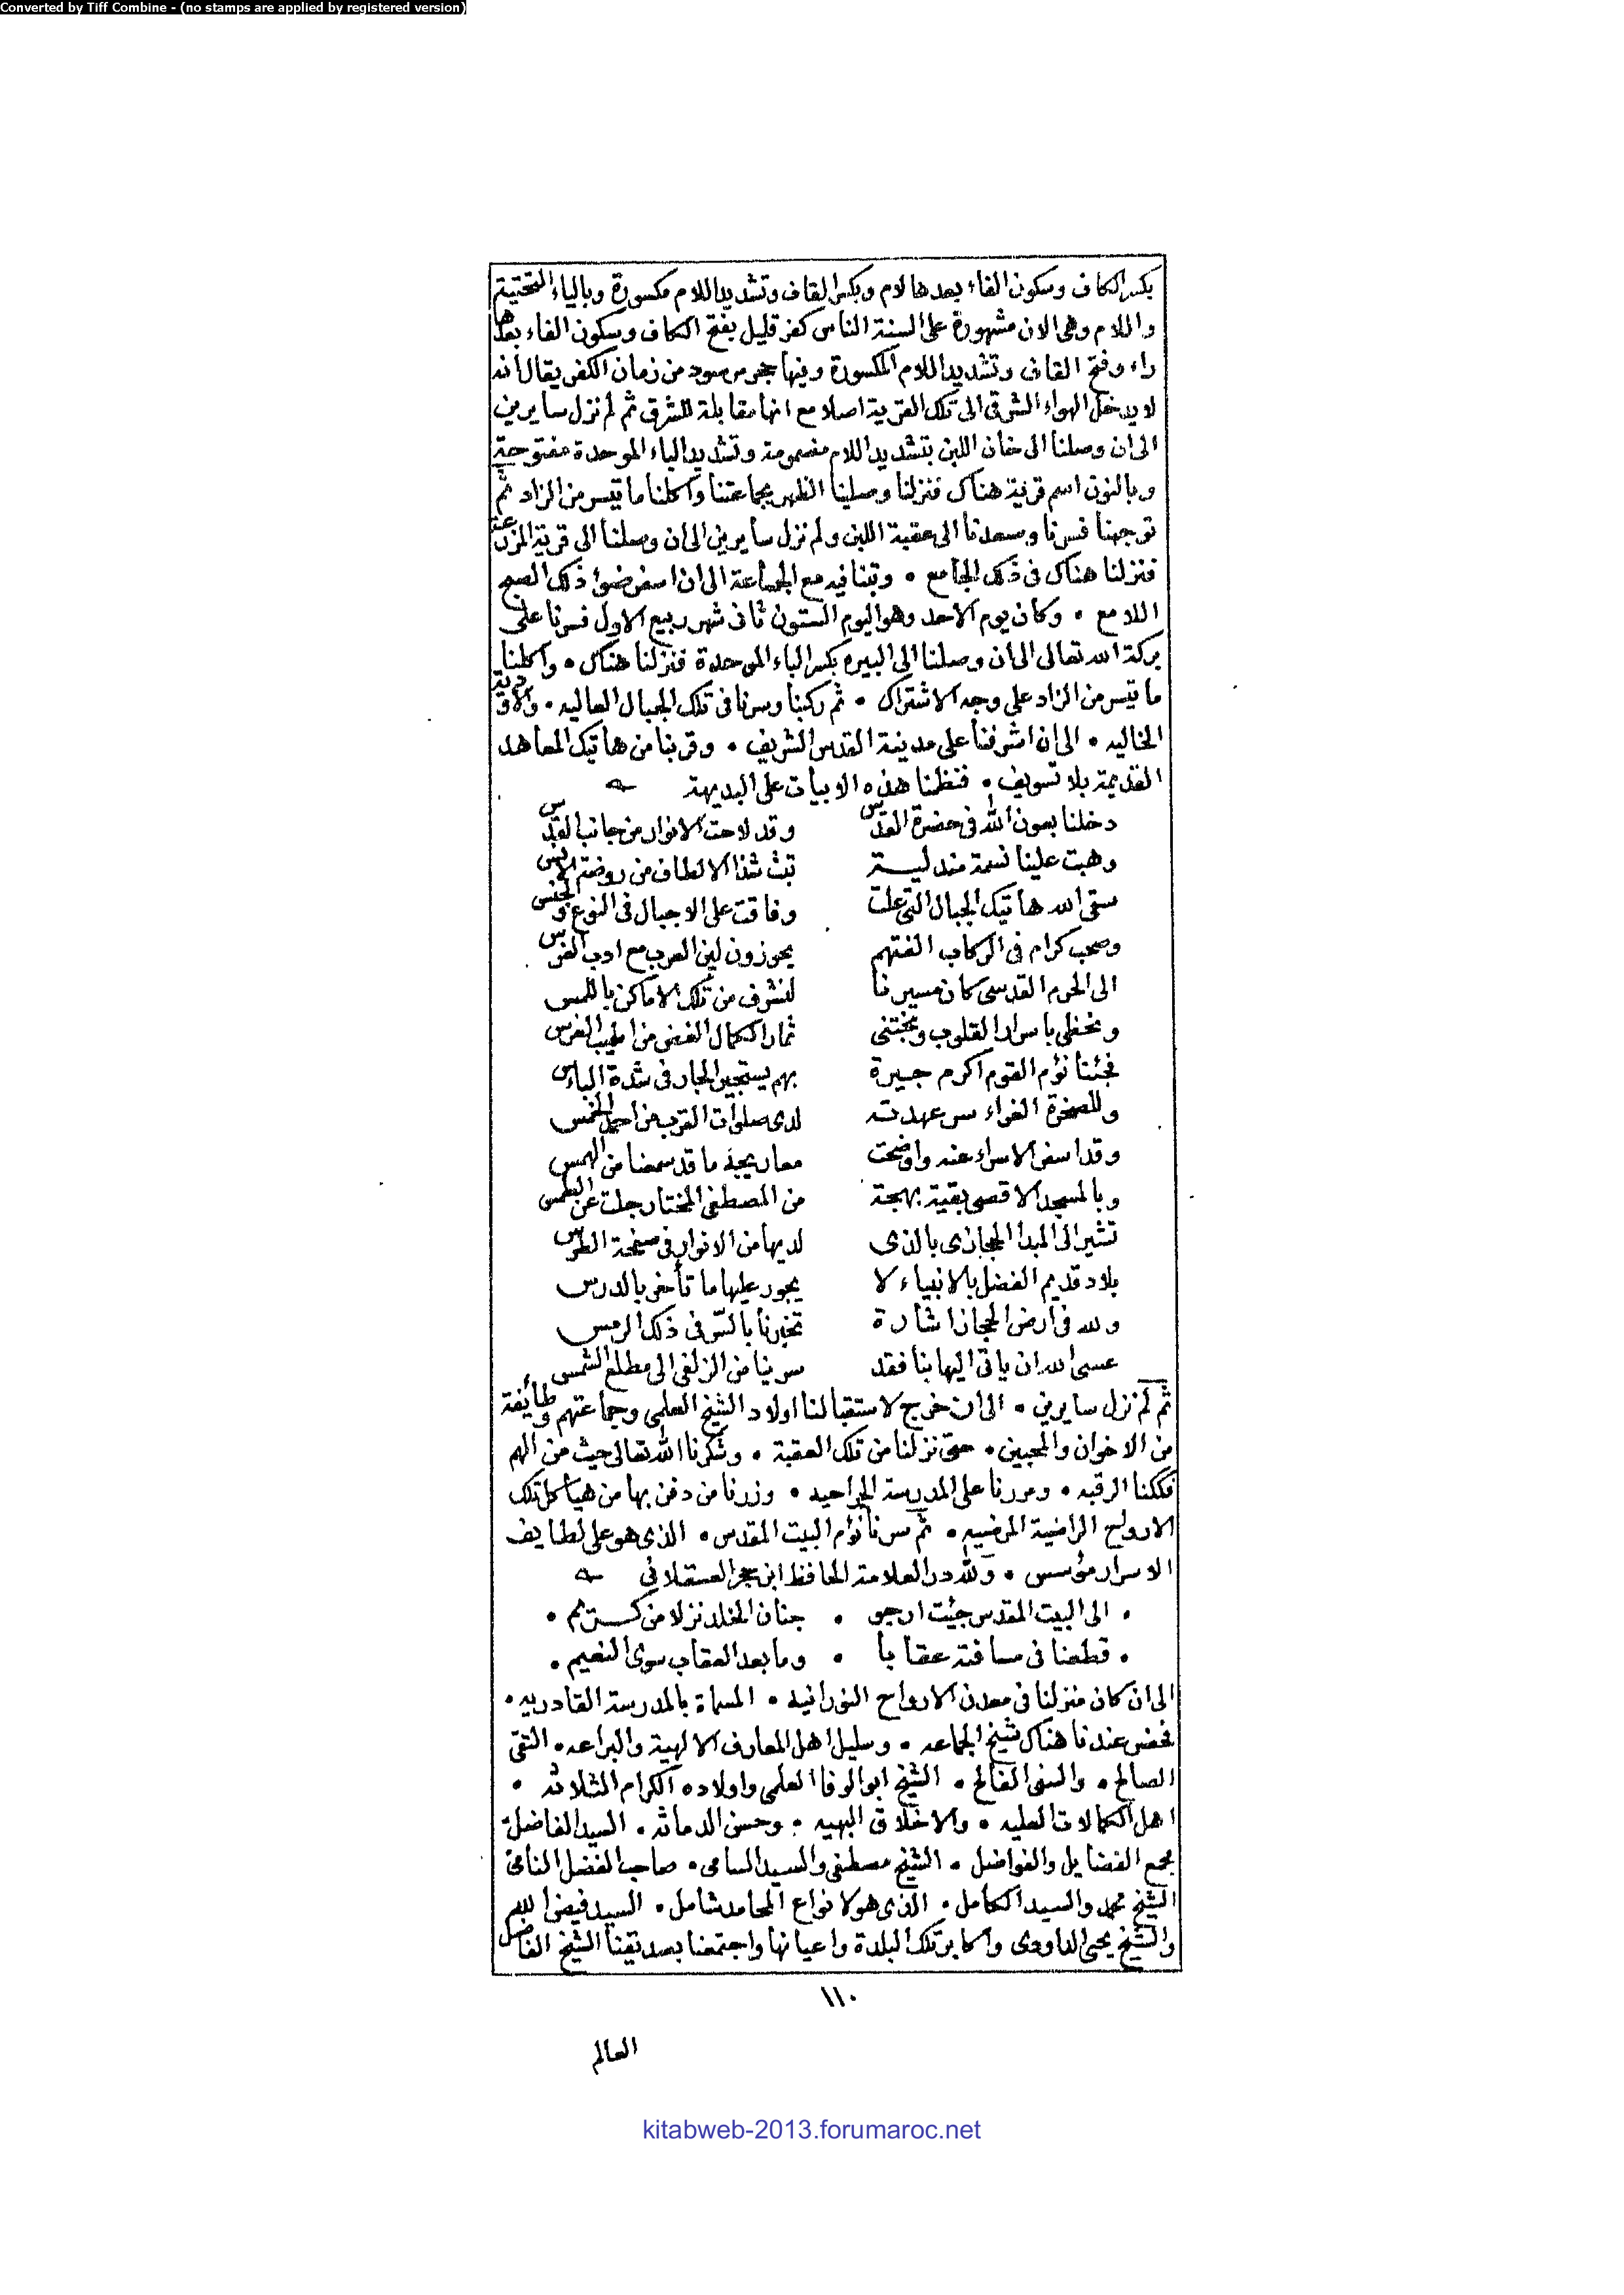 Converted by Tiff Combine - (no stamps are applied by registered version)
بكسر الكاف وسكون الفاء بعدها لام وبكسر القاف وتشديد اللام مكسورة وبالياء التحتية
واللام وهى الان مشهورة على السنة الناس كفر قليل بفتح الكاف وسكون الفاء بعدها
راء وفتح القاف وتشديد اللام المكسورة وفيها حجر مرصود من زمان الكفر يقال أنه
لا يدخل الهواء الشرقى الى تلك القرية اصلا مع انها مقابلة للشرق ثم لم نزل سايرين
الى ان وصلنا الى خان اللبن بتشديد اللام مضمومة وتشديد الباء الموحدة مفتوحة
وبالنون اسم قرية هناك فنزلنا وصلينا الظهر بجماعتنا وأكلنا ما تيسر من الزاد ثم
توجهنا فسرنا وصعدنا الى عقبة اللبن ولم نزل سايرين الى ان وصلنا الى قرية المزرعة
فنزلنا هناك فى ذلك الجامع • وبتنا فيه مع الجماعة الى ان اسفر ضوء ذلك الصبح
اللامع • وكان يوم الاحد وهو اليوم الستون ثانى شهر ربيع الاول فسرنا على
بركة الله تعالى الى أن وصلنا الى البيره بكسر الباء الموحدة فنزلنا هناك • وأكلنا
ما تيسر من الزاد على وجه الاشتراك • ثم ركبنا وسرنا فى تلك الجبال العاليه • والاودية
الخاليه • الى ان اشرفنا على مدينة القدس الشريف • وقربنا من هاتيك المعاهد
القديمة بلا تسويف • فنظمنا هذه الابيات على البديهة
دخلنا بعون الله فى حضرة القدس وقد لاحت الانوار من جانب القدس
وهبت علينا نسمة مندلية تبث شذا الالطاف من روضة الانس
سقى الله هاتيك الجبال التى علت وفاقت على الاجبال فى النوع والجنس
وصحب كرام فى الركاب الفتهم يحوزون لين العرب مع ادب الفرس
الى الحرم القدسى كان مسيرنا لنشرف من تلك الاماكن باللمس
ونحظى باسرار القلوب ونجتنى ثمار الكمال الغض من اطيب الغرس
فجئنا نؤم القوم اكرم جيرة بهم يستجير الجار فى شدة البأس
وللصخرة الغراء سر عهدته لدى صلوات القرب من اجمل الخمس
وقد اسفر الاسراء عنه واوضحت معاريجه ما قد سمعنا من الهمس
وبالمسجد الاقصى بقية بهجة من المصطفى المختار جلت عن الطمس
تشير الى المبدا الحجازى بالذى لديها من الانوار فى صفحة الطرس
بلاد قديم الفضل بالانبياء لا يجور عليها ما تأخر بالدرس
ولله فى أرض الحجاز اشارة تخبرنا بالسّر فى ذلك الرمس
عسى الله ان ياتى اليها بنا فقد سرينا من الزلفى الى مطلع الشمس
ثم لم نزل سايرين • الى أن خرج لاستقبالنا اولاد الشيخ العلمى وجماعتهم وطائفة
من الاخوان والمحبين • حتى نزلنا من تلك العقبة • وشكرنا الله تعالى حيث من الهم
فككنا الرقبه • ومررنا على المدرسة الجراحيه • وزرنا من دفن بها من هياكل تلك
الارواح الراضية المرضيه • ثم سرنا نؤم البيت المقدس • الذى هو على لطايف
الاسرار مؤسس • ولله در العلامة الحافظ ابن حجر العسقلانى
• الى البيت المقدس جئت ارجو • جنان الخلد نزلا من كريم •
• قطعنا فى مسافته عقابا • وما بعد العقاب سوى النعيم •
الى ان كان منزلنا فى معدن الارواح النورانيه • المسماة بالمدرسة القادريه •
فحضر عندنا هناك شيخ الجماعه • وسليل اهل المعارف الالهية والبراعه • التقى
الصالح • والسنى الفالح • الشيخ ابو الوفا العلمى واولاده الكرام الثلاثه •
اهل الكمالات العليه • والاخلاق البهيه • وحسن الدماثه • السيد الفاضل
مجمع الفضايل والفواضل • الشيخ مصطفى والسيد السامى • صاحب الفضل النامى
الشيخ محمد والسيد الكامل • الذى هو لانواع المحامد شامل • السيد فيض الله
والشيخ يحيى الداودى وأكابر تلك البلدة واعيانها واجتمعنا بصديقنا الشيخ الفاضل
١١٠
العالم
kitabweb-2013.forumaroc.net